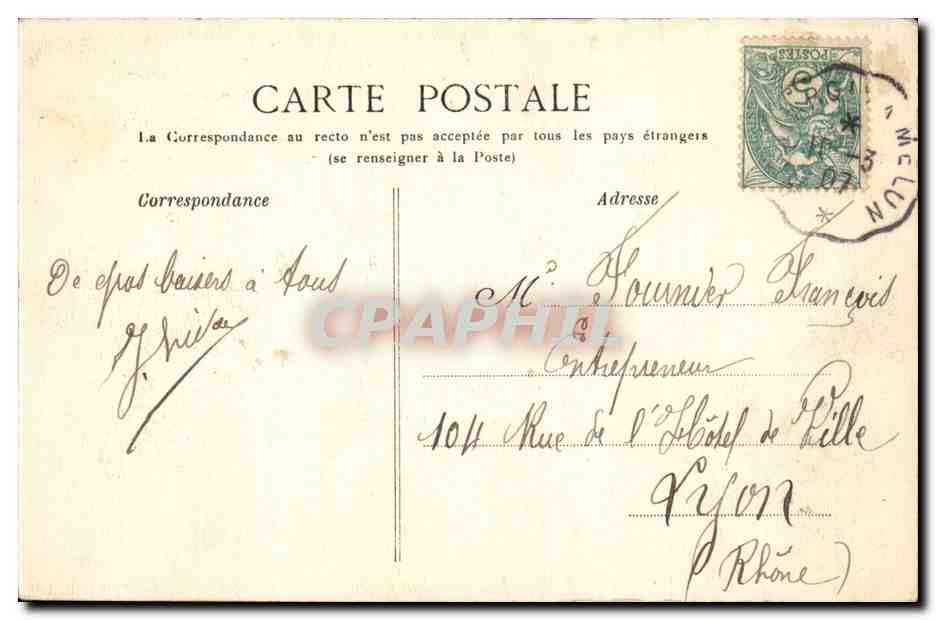 CARTE POSTALE
La Correspondance au recto n'est pas acceptée par tous les pays étrangers
(se renseigner à la Poste)
Correspondance
Adresse
POSTES
MELUN
07
De gros baisers à tous
Mr. Fournier François
Entrepreneur
104 Rue de l'Hôtel de Ville
Lyon
(Rhône)
CPAPHIL